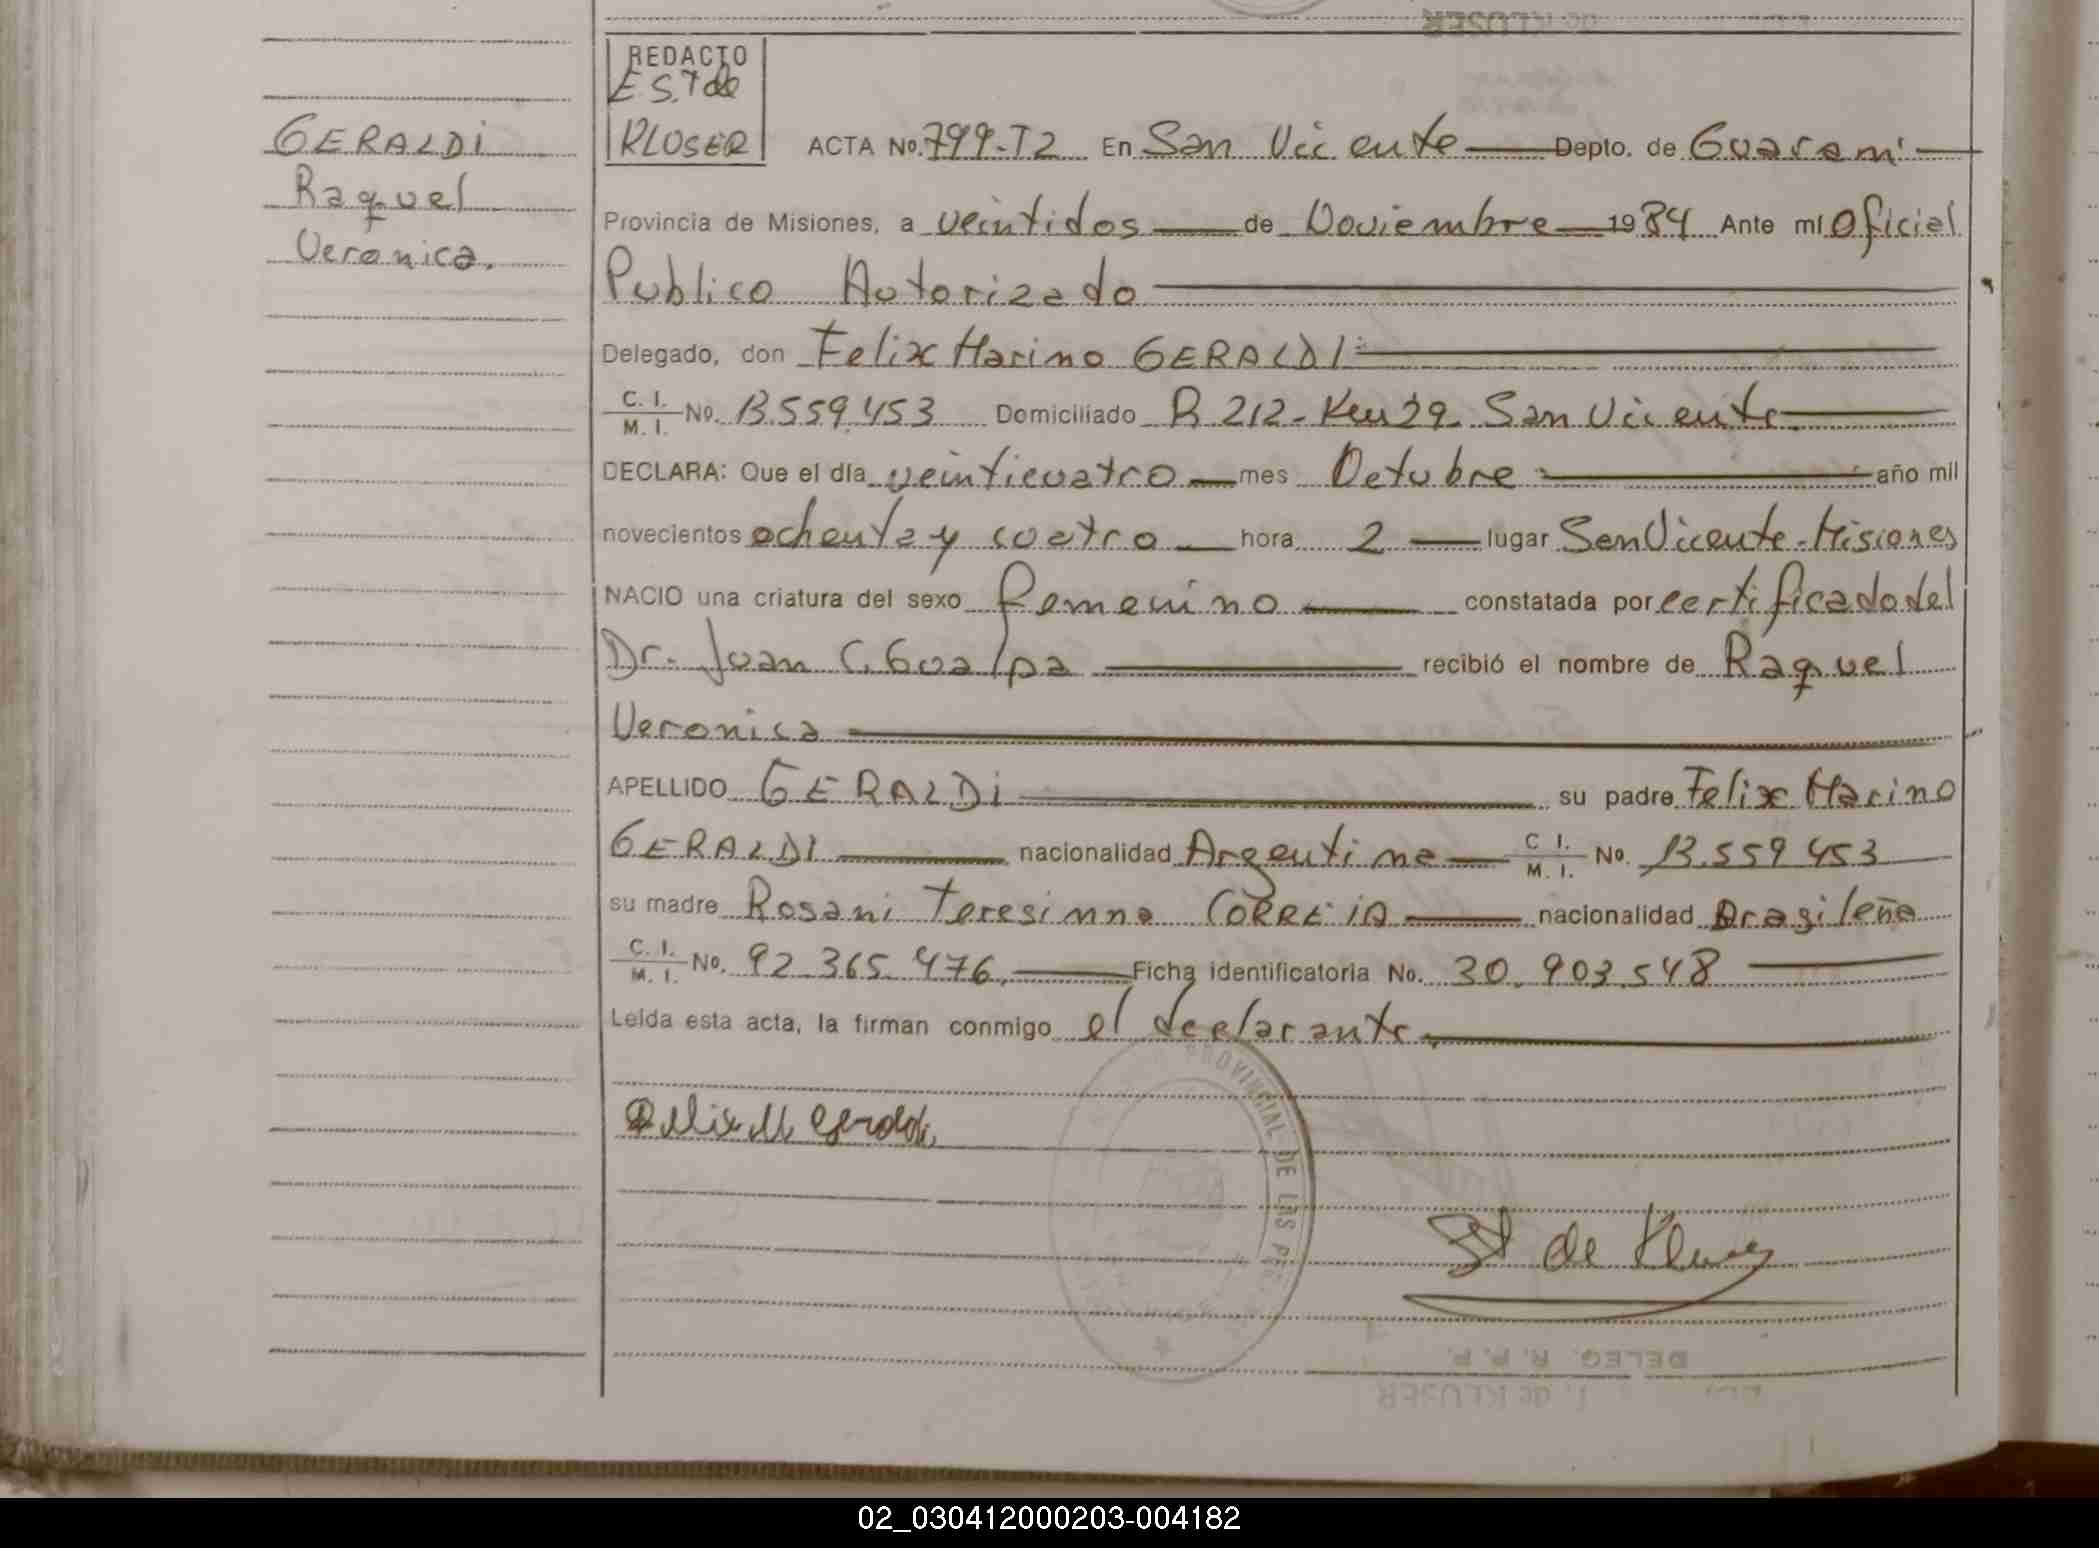 GERALDI
Raquel
Veronica.
REDACTO
E S.T de
KLOSER
ACTA No. 799-T2 En San Vicente Depto. de Guarani
Provincia de Misiones, a veintidos de Noviembre 1984 Ante mí Oficial
Publico Autorizado
Delegado, don Felix Marino GERALDI
C. I.
M. I. No. 13.559.453 Domiciliado R.212-Km 29. San Vicente
DECLARA: Que el día veinticuatro mes Octubre año mil
novecientos ochenta y cuatro hora 2 lugar San Vicente-Misiones
NACIO una criatura del sexo femenino constatada por certificado del
Dr. Juan C. Gualpa recibió el nombre de Raquel
Veronica
APELLIDO GERALDI su padre Felix Marino
GERALDI nacionalidad Argentina C. I. M. I. No. 13.559.453
su madre Rosani Teresinna CORREIA nacionalidad Brasileña
C. I.
M. I. No. 92.365.476. Ficha identificatoria No. 30.903.548
Leída esta acta, la firman conmigo el declarante.
Felix M Geraldi
PROVINCIAL DE LAS
DELEG. R. P. P.
T. de KLUSER
02_030412000203-004182